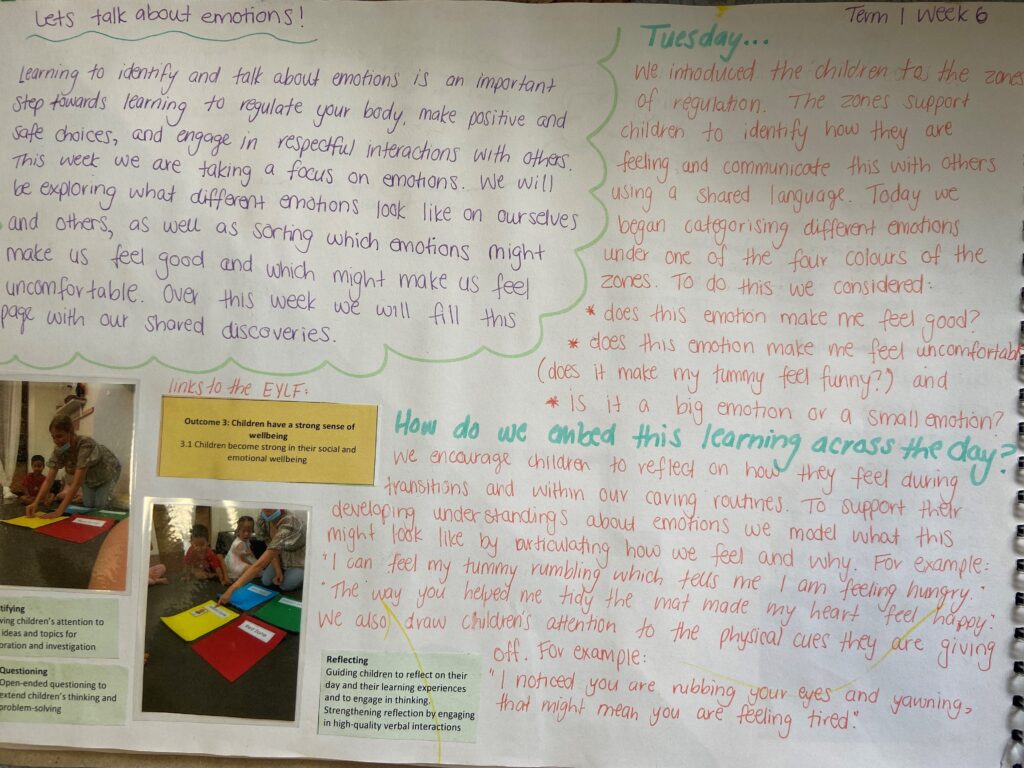 Lets talk about emotions!
Learning to identify and talk about emotions is an important
step towards learning to regulate your body, make positive and
safe choices, and engage in respectful interactions with others.
This week we are taking a focus on emotions. We will
be exploring what different emotions look like on ourselves
and others, as well as sorting which emotions might
make us feel good and which might make us feel
uncomfortable. Over this week we will fill this
page with our shared discoveries.
Term 1 Week 6
Tuesday...
We introduced the children to the zones
of regulation. The zones support
children to identify how they are
feeling and communicate this with others
using a shared language. Today we
began categorising different emotions
under one of the four colours of the
zones. To do this we considered:
* does this emotion make me feel good?
* does this emotion make me feel uncomfortab
(does it make my tummy feel funny?) and
* is it a big emotion or a small emotion?
links to the EYLF:
Outcome 3: Children have a strong sense of
wellbeing
3.1 Children become strong in their social and
emotional wellbeing
How do we embed this learning across the day?
We encourage children to reflect on how they feel during
transitions and within our caring routines. To support their
developing understandings about emotions we model what this
might look like by articulating how we feel and why. For example:
"I can feel my tummy rumbling which tells me I am feeling hungry."
"The way you helped me tidy the mat made my heart feel happy."
We also draw children's attention to the physical cues they are giving
off. For example:
"I noticed you are rubbing your eyes and yawning,
that might mean you are feeling tired."
tifying
ving children's attention to
ideas and topics for
oration and investigation
Questioning
Open-ended questioning to
extend children's thinking and
problem-solving
Reflecting
Guiding children to reflect on their
day and their learning experiences
and to engage in thinking.
Strengthening reflection by engaging
in high-quality verbal interactions